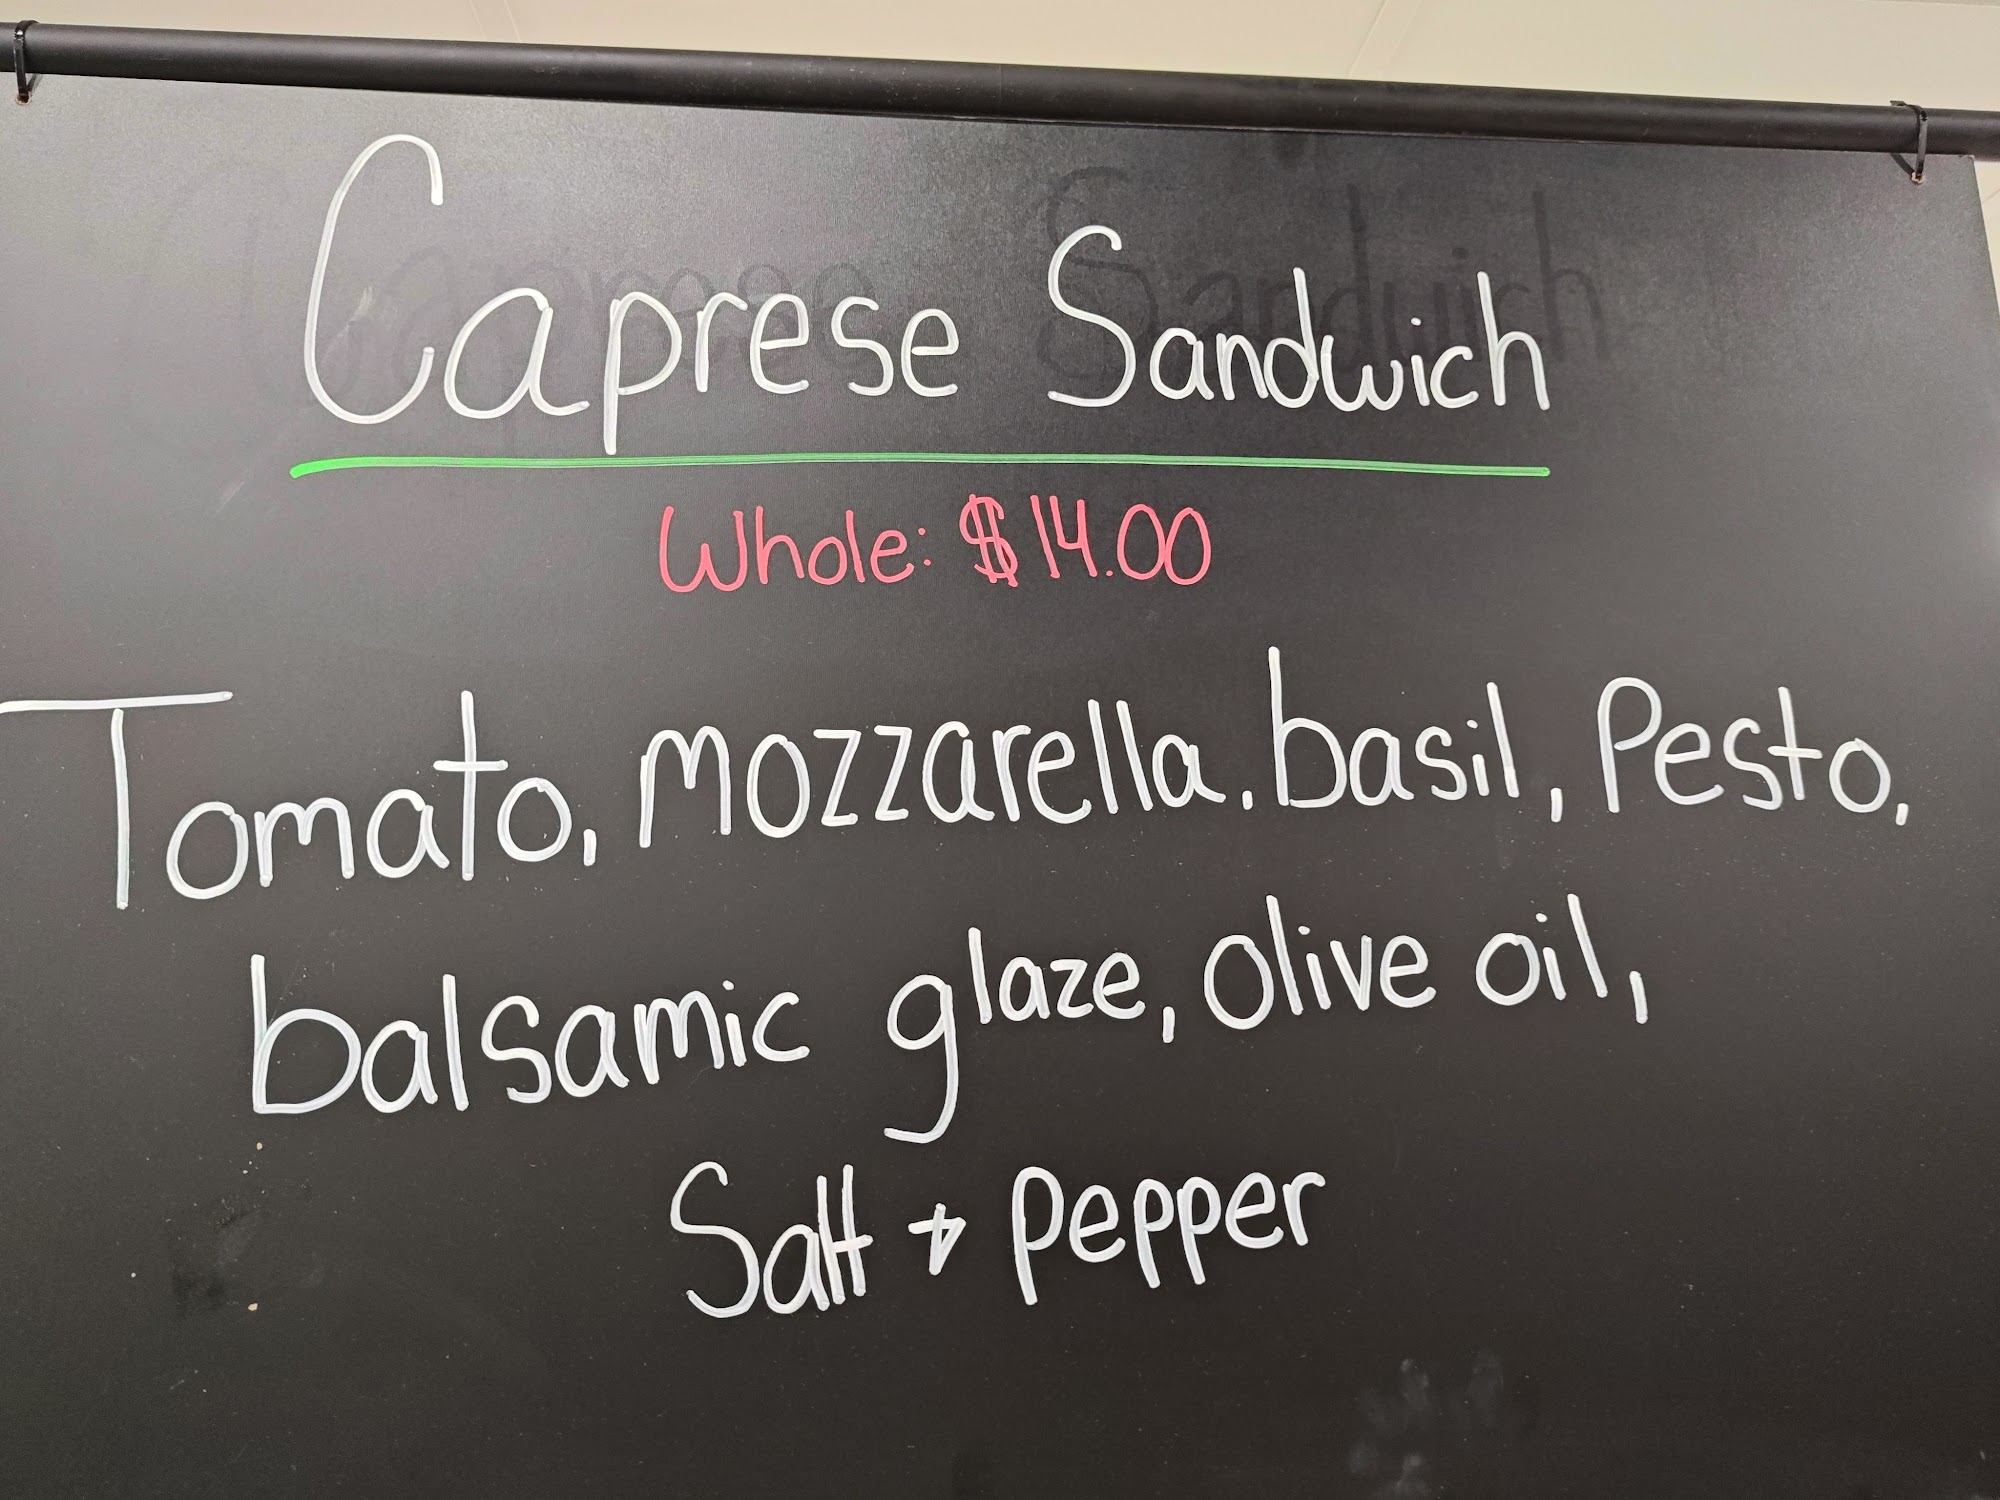 Caprese Sandwich
Whole: $14.00
Tomato, mozzarella. basil, Pesto,
balsamic glaze, olive oil,
Salt + pepper